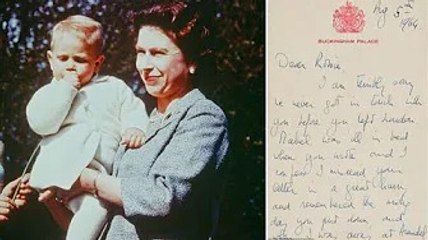 Aug 5th
1964
BUCKINGHAM PALACE
Dear Rosie
I am terribly sorry
we never got in touch with
you before you left London
Mabel was ill in bed
when you wrote and I
confess I mislaid your
letter in a great heap
and remembered the wrong
day you put down and
I was away at Arundel